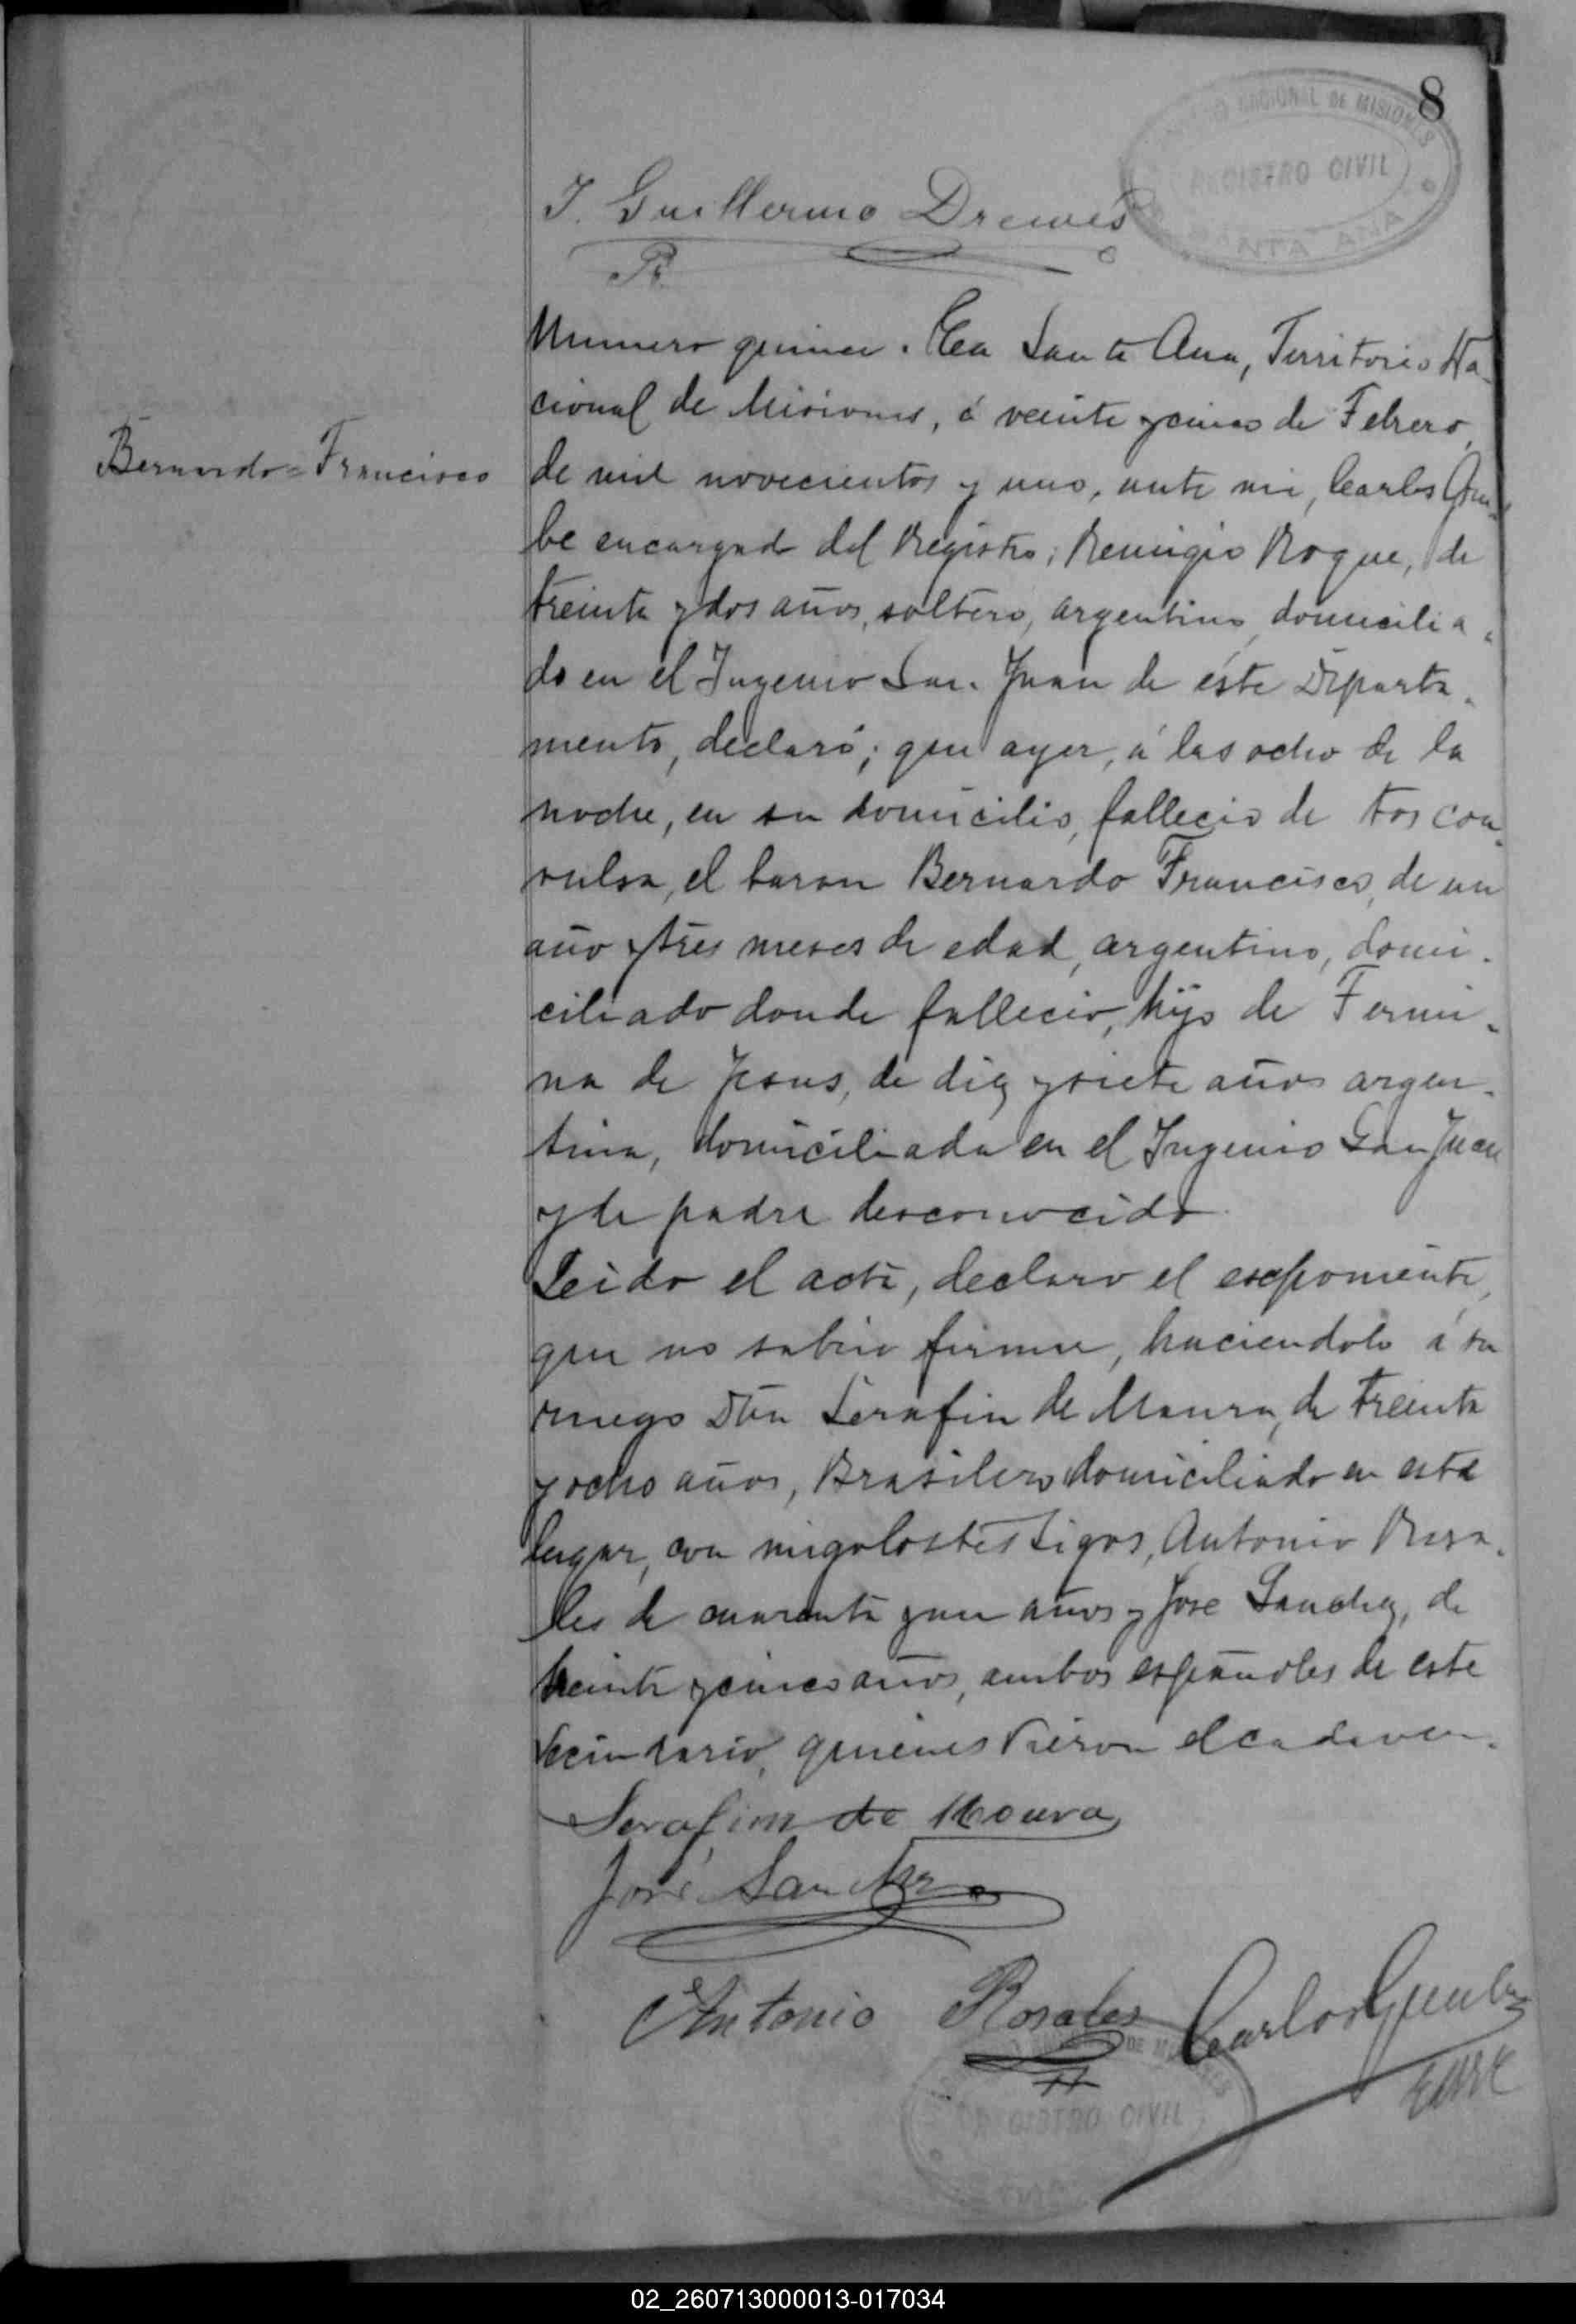 8
TERRITORIO NACIONAL DE MISIONES
REGISTRO CIVIL
SANTA ANA
J. Guillermo Drewes
Bernardo = Francisco
Numero quince. En Santa Ana, Territorio Na-
cional de Misiones, á veinte y cinco de Febrero,
de mil novecientos y uno, ante mi, Carlos Gum-
be encargado del Registro; Remigio Roque, de
treinta y dos años, soltero, argentino domicilia-
do en el Ingenio San Juan de éste Departa-
mento, declaró; que ayer, á las ocho de la
noche, en su domicilio, fallecio de tos con-
vulsa, el baron Bernardo Francisco, de un
año y tres meses de edad, argentino, domi-
ciliado donde fallecio, hijo de Fermi-
na de Jesus, de diez y siete años argen-
tina, domiciliada en el Ingenio San Juan
y de padre desconocido
Leido el acta, declaro el exponiente,
que no sabia firmar, haciendolo á su
ruego Dn Serafin de Moura, de treinta
y ocho años, Brasilero domiciliado en este
lugar, con migo los testigos, Antonio Rosa-
les de cuarenta y un años y Jose Sanchez, de
treinta y cinco años, ambos españoles de este
vecindario, quienes vieron el cadaver.
Serafim de Moura
José Sanchez
Antonio Rosales
Carlos
REGISTRO CIVIL
02_260713000013-017034